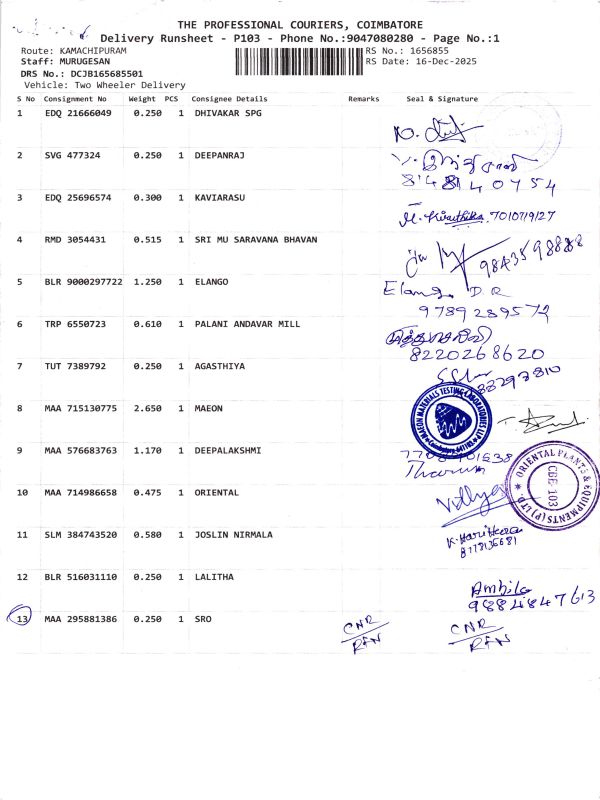 THE PROFESSIONAL COURIERS, COIMBATORE
Delivery Runsheet - P103 - Phone No.:9047080280 - Page No.:1
Route: KAMACHIPURAM RS No.: 1656855
Staff: MURUGESAN RS Date: 16-Dec-2025
DRS No.: DCJB165685501
Vehicle: Two Wheeler Delivery
S No Consignment No Weight PCS Consignee Details Remarks Seal & Signature
1 EDQ 21666049 0.250 1 DHIVAKAR SPG
2 SVG 477324 0.250 1 DEEPANRAJ
8148140754
3 EDQ 25696574 0.300 1 KAVIARASU
7010719127
4 RMD 3054431 0.515 1 SRI MU SARAVANA BHAVAN
9843598888
5 BLR 9000297722 1.250 1 ELANGO
Elango D R
9789289572
6 TRP 6550723 0.610 1 PALANI ANDAVAR MILL
8220268620
7 TUT 7389792 0.250 1 AGASTHIYA
8 MAA 715130775 2.650 1 MAEON
MAEON MATERIALS TESTING LABORATORIES LLP
9 MAA 576683763 1.170 1 DEEPALAKSHMI
Tharun
10 MAA 714986658 0.475 1 ORIENTAL
Vidhya
ORIENTAL PLANTS & EQUIPMENTS (P) LTD.
CBE-103
11 SLM 384743520 0.580 1 JOSLIN NIRMALA
8778136681
12 BLR 516031110 0.250 1 LALITHA
Ambila
9884847613
13 MAA 295881386 0.250 1 SRO CNR CNR
RTN RTN